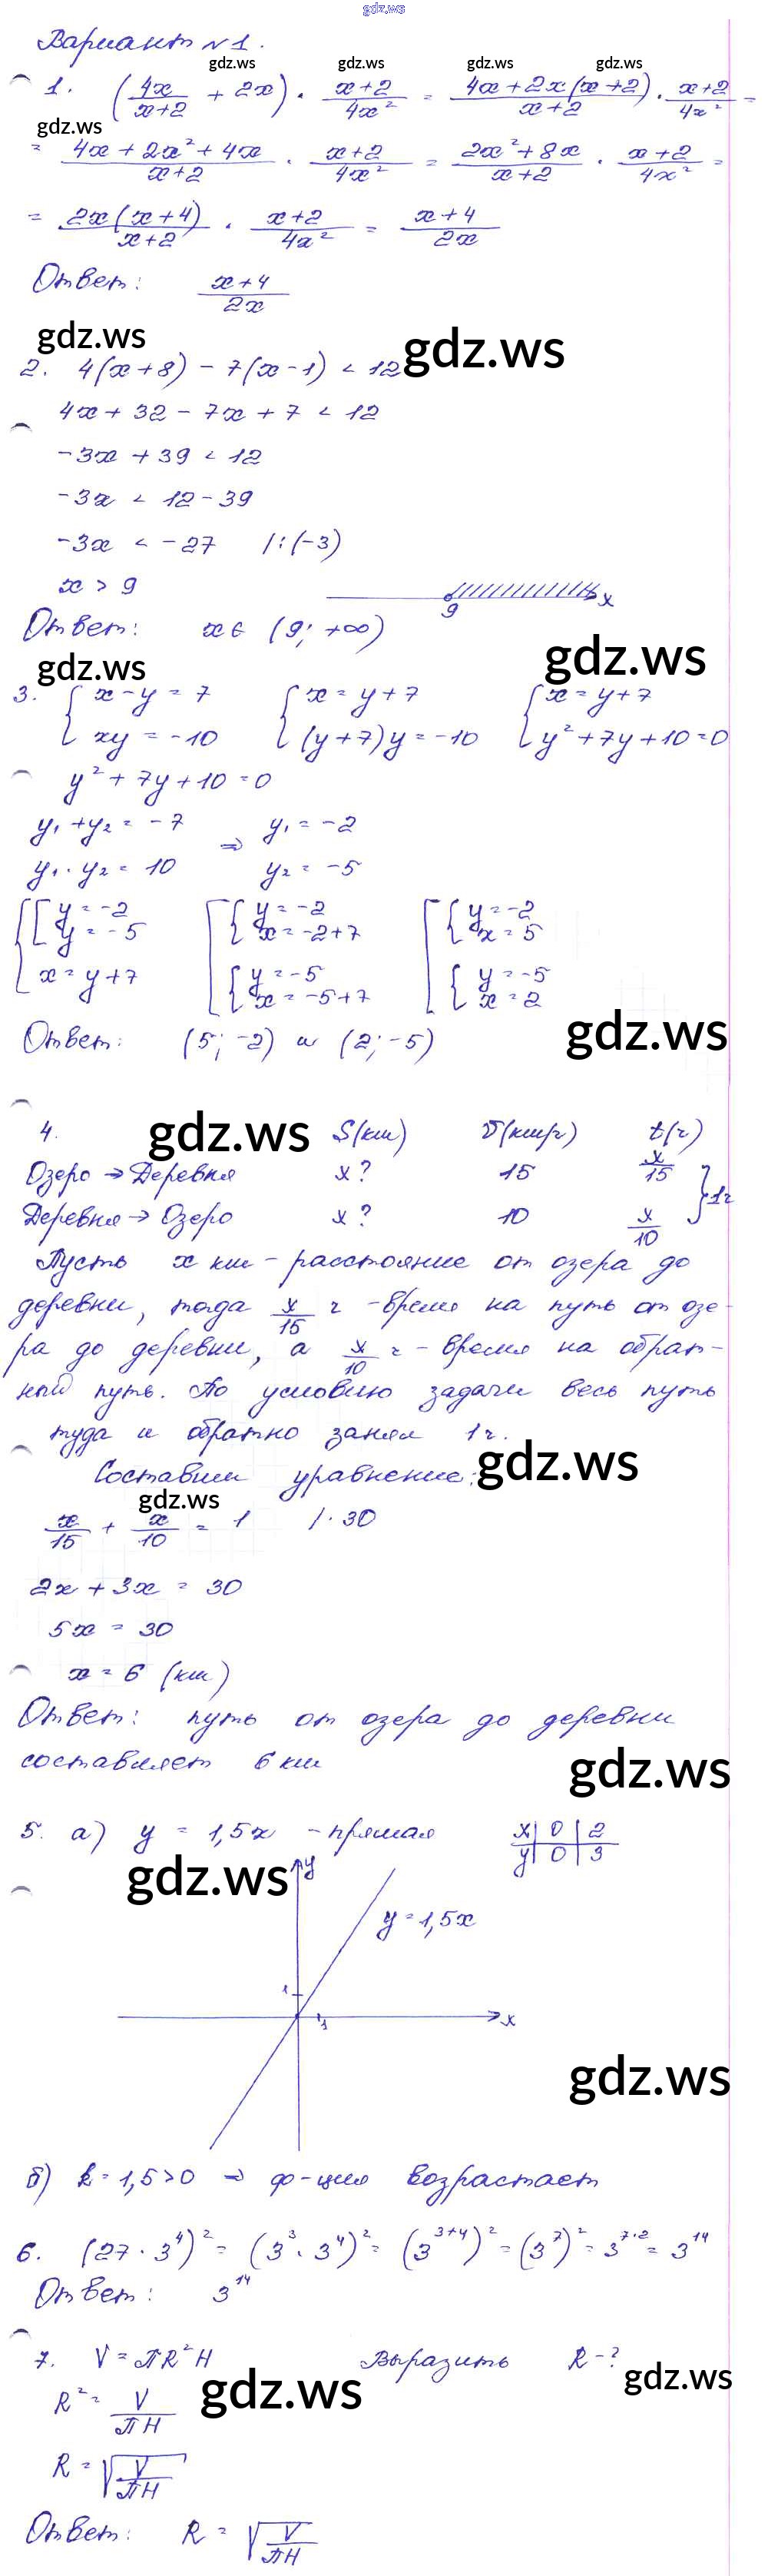 gdz.ws
Вариант №1.
gdz.ws gdz.ws gdz.ws gdz.ws
1. (4x/(x+2) + 2x) · (x+2)/(4x²) = (4x+2x(x+2))/(x+2) · (x+2)/(4x²) =
gdz.ws
= (4x+2x²+4x)/(x+2) · (x+2)/(4x²) = (2x²+8x)/(x+2) · (x+2)/(4x²) =
= (2x(x+4))/(x+2) · (x+2)/(4x²) = (x+4)/(2x)
Ответ: (x+4)/(2x)
gdz.ws gdz.ws
2. 4(x+8) - 7(x-1) < 12
4x + 32 - 7x + 7 < 12
-3x + 39 < 12
-3x < 12 - 39
-3x < -27 |:(-3)
x > 9
9 x
Ответ: x ∈ (9; +∞)
gdz.ws gdz.ws
3. { x - y = 7 { x = y + 7 { x = y + 7
xy = -10 (y+7)y = -10 y² + 7y + 10 = 0
y² + 7y + 10 = 0
y₁ + y₂ = -7 ⇒ y₁ = -2
y₁ · y₂ = 10 y₂ = -5
{ [ y = -2 [ { y = -2 [ { y = -2
y = -5 x = -2+7 x = 5
x = y + 7 { y = -5 { y = -5
x = -5+7 x = 2
Ответ: (5; -2) и (2; -5)
gdz.ws
4. gdz.ws S(км) V(км/ч) t(ч)
Озеро → Деревня x? 15 x/15
Деревня → Озеро x? 10 x/10 } 1ч
Пусть x км - расстояние от озера до
деревни, тогда x/15 ч - время на путь от озе-
ра до деревни, а x/10 ч - время на обрат-
ный путь. По условию задачи весь путь
туда и обратно занял 1ч.
Составим уравнение: gdz.ws
gdz.ws
x/15 + x/10 = 1 |· 30
2x + 3x = 30
5x = 30
x = 6 (км)
Ответ: путь от озера до деревни
составляет 6 км
gdz.ws
5. а) y = 1,5x - прямая x | 0 | 2
y | 0 | 3
gdz.ws
y
y = 1,5x
1
1 x
gdz.ws
б) k = 1,5 > 0 ⇒ ф-ция возрастает
6. (27 · 3⁴)² = (3³ · 3⁴)² = (3³⁺⁴)² = (3⁷)² = 3⁷·² = 3¹⁴
Ответ: 3¹⁴
7. V = πR²H Выразить R - ?
gdz.ws gdz.ws
R² = V/(πH)
R = √(V/(πH))
Ответ: R = √(V/(πH))